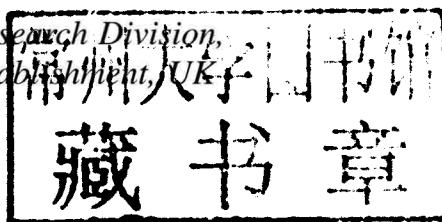 search Division,
ablishment, UK
常州大学图书馆
藏书章